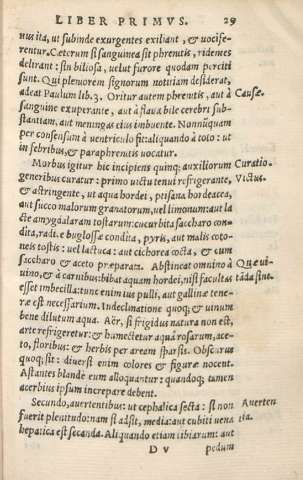 LIBER PRIMVS. 29
nus ita, ut subinde exurgentes exiliant, & uocife-
rentur. Cæterum si sanguinea sit phrenitis, ridentes
delirant: sin biliosa, uelut furore quodam perciti
sunt. Qui plenorem signorum notitiam desiderat,
adeat Paulum lib. 3. Oritur autem phrenitis, aut à Causæ.
sanguine exuperante, aut à flaua bile cerebri sub-
stantiam, aut meningas eius imbuente. Nonnũquam
per consensum à uentriculo fit: aliquando à toto: ut
in febribus, & paraphrenitis uocatur.
Morbus igitur hic incipiens quinq; auxiliorum Curatio.
generibus curatur: primo uictu tenui refrigerante, Victus.
& astringente, ut aqua hordei, ptisana hordeacea,
aut succo malorum granatorum, uel limonum: aut la
cte amygdalarum tostarum: cucurbita saccharo con-
dita, radi. e buglossæ condita, pyris, aut malis coto-
neis tostis: uel lactuca: aut cichorea cocta, & cum
saccharo & aceto præparata. Abstineat omnino à Quæ ui-
uino, & à carnibus: bibat aquam hordei, nisi facultas tãda sint.
esset imbecilla: tunc enim ius pulli, aut gallinæ tene-
ræ est necessarium. In declinatione quoq; & uinum
bene dilutum aqua. Aër, si frigidus natura non est,
arte refrigeretur: & humectetur aqua rosarum, ace-
to, floribus: & herbis per aream sparsis. Obscurus
quoq; sit: diuersi enim colores & figuræ nocent.
Astantes blande eum alloquantur: quandoq; tamen
acerbius ipsum increpare debent.
Secundo, auertentibus: ut cephalica secta: si non Auerten
fuerit plenitudo: nam si adsit, media: aut cubiti uena tia.
hepatica est secanda. Aliquando etiam tibiarum: aut
D v pedum